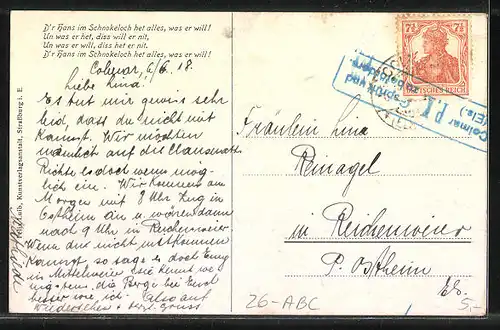 D'r Hans im Schnokeloch het alles, was er will!
Un was er het, diss will er nit,
Un was er will, diss het er nit.
D'r Hans im Schnokeloch het alles, was er will!
Colmar, 6/6. 18.
Liebe Lina!
Es tut mir gewiss sehr
leid, dass du nicht mit
kannst. Wir möchten
nämlich auf die
es doch wenn mög-
lich ein. Wir kommen am
Morgen mit 8 Uhr Zug in
Ostheim an u. wären dann
nach 9 Uhr in Reichenweier.
Wenn du nicht mitkommen
kannst, so sage es doch Emy
in Mittelweier
die Berge bei Euch
besser wie ich. Also auf
Wiedersehen + herzl. Gruss
Kunstverlagsanstalt, Straßburg i. E.
7½ 7½
DEUTSCHES REICH
Geprüft und
zu befördern
Colmar P. K.
(Els.)
Fräulein Lina
Reinagel
in Reichenweier
P. Ostheim
Els.
26-ABC
5,-